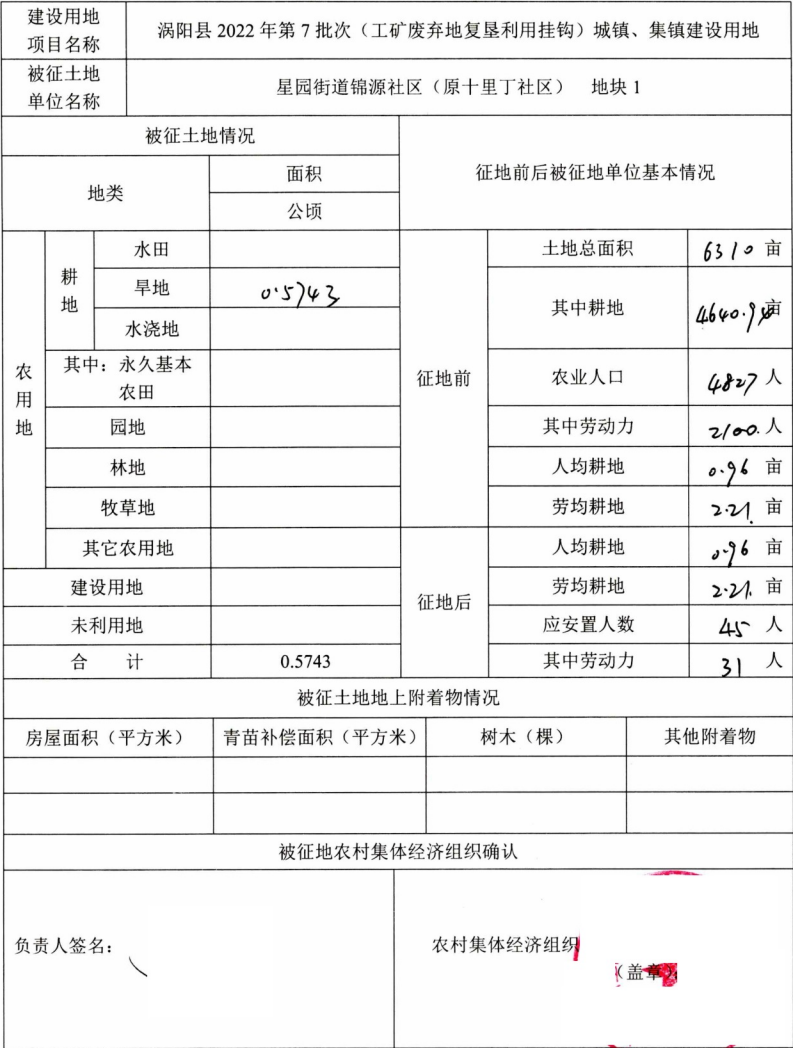 建设用地
项目名称
涡阳县 2022 年第 7 批次（工矿废弃地复垦利用挂钩）城镇、集镇建设用地
被征土地
单位名称
星园街道锦源社区（原十里丁社区） 地块 1
被征土地情况
征地前后被征地单位基本情况
地类
面积
公顷
农用地
耕地
水田
旱地
0.5743
水浇地
其中：永久基本
农田
园地
林地
牧草地
其它农用地
建设用地
未利用地
合 计
0.5743
征地前
土地总面积
6310 亩
其中耕地
4640.94亩
农业人口
4827 人
其中劳动力
2100. 人
人均耕地
0.96 亩
劳均耕地
2.21. 亩
征地后
人均耕地
0.96 亩
劳均耕地
2.21. 亩
应安置人数
45 人
其中劳动力
31 人
被征土地地上附着物情况
房屋面积（平方米）
青苗补偿面积（平方米）
树木（棵）
其他附着物
被征地农村集体经济组织确认
负责人签名：
农村集体经济组织
（盖章）